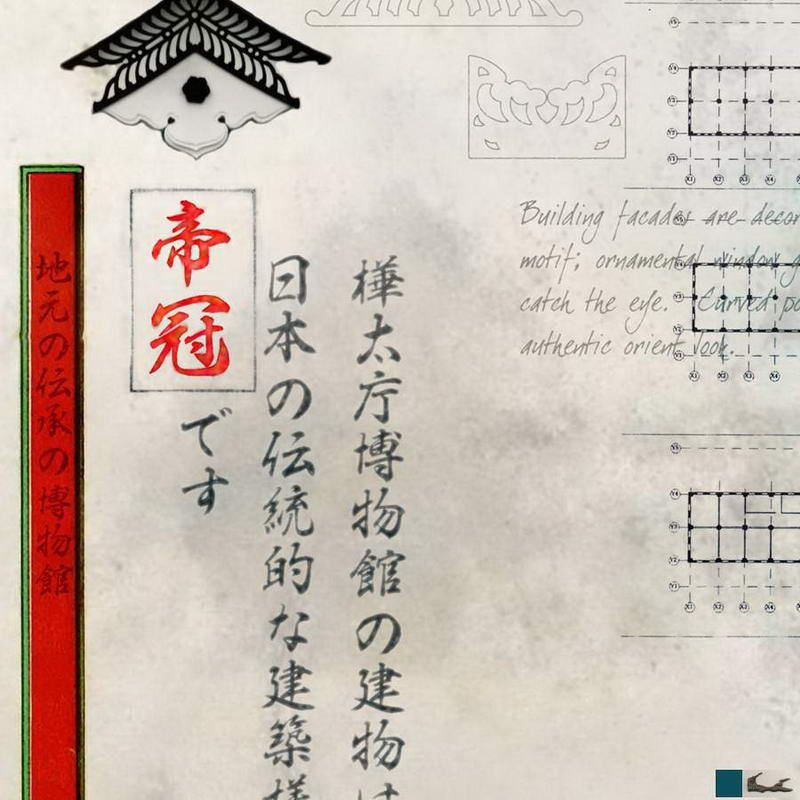 樺太庁博物館の建物は
日本の伝統的な建築様
帝冠
です
地元の伝承の博物館
Building facades are decor
motif; ornamental window g
catch the eye. Curved po
authentic orient look.